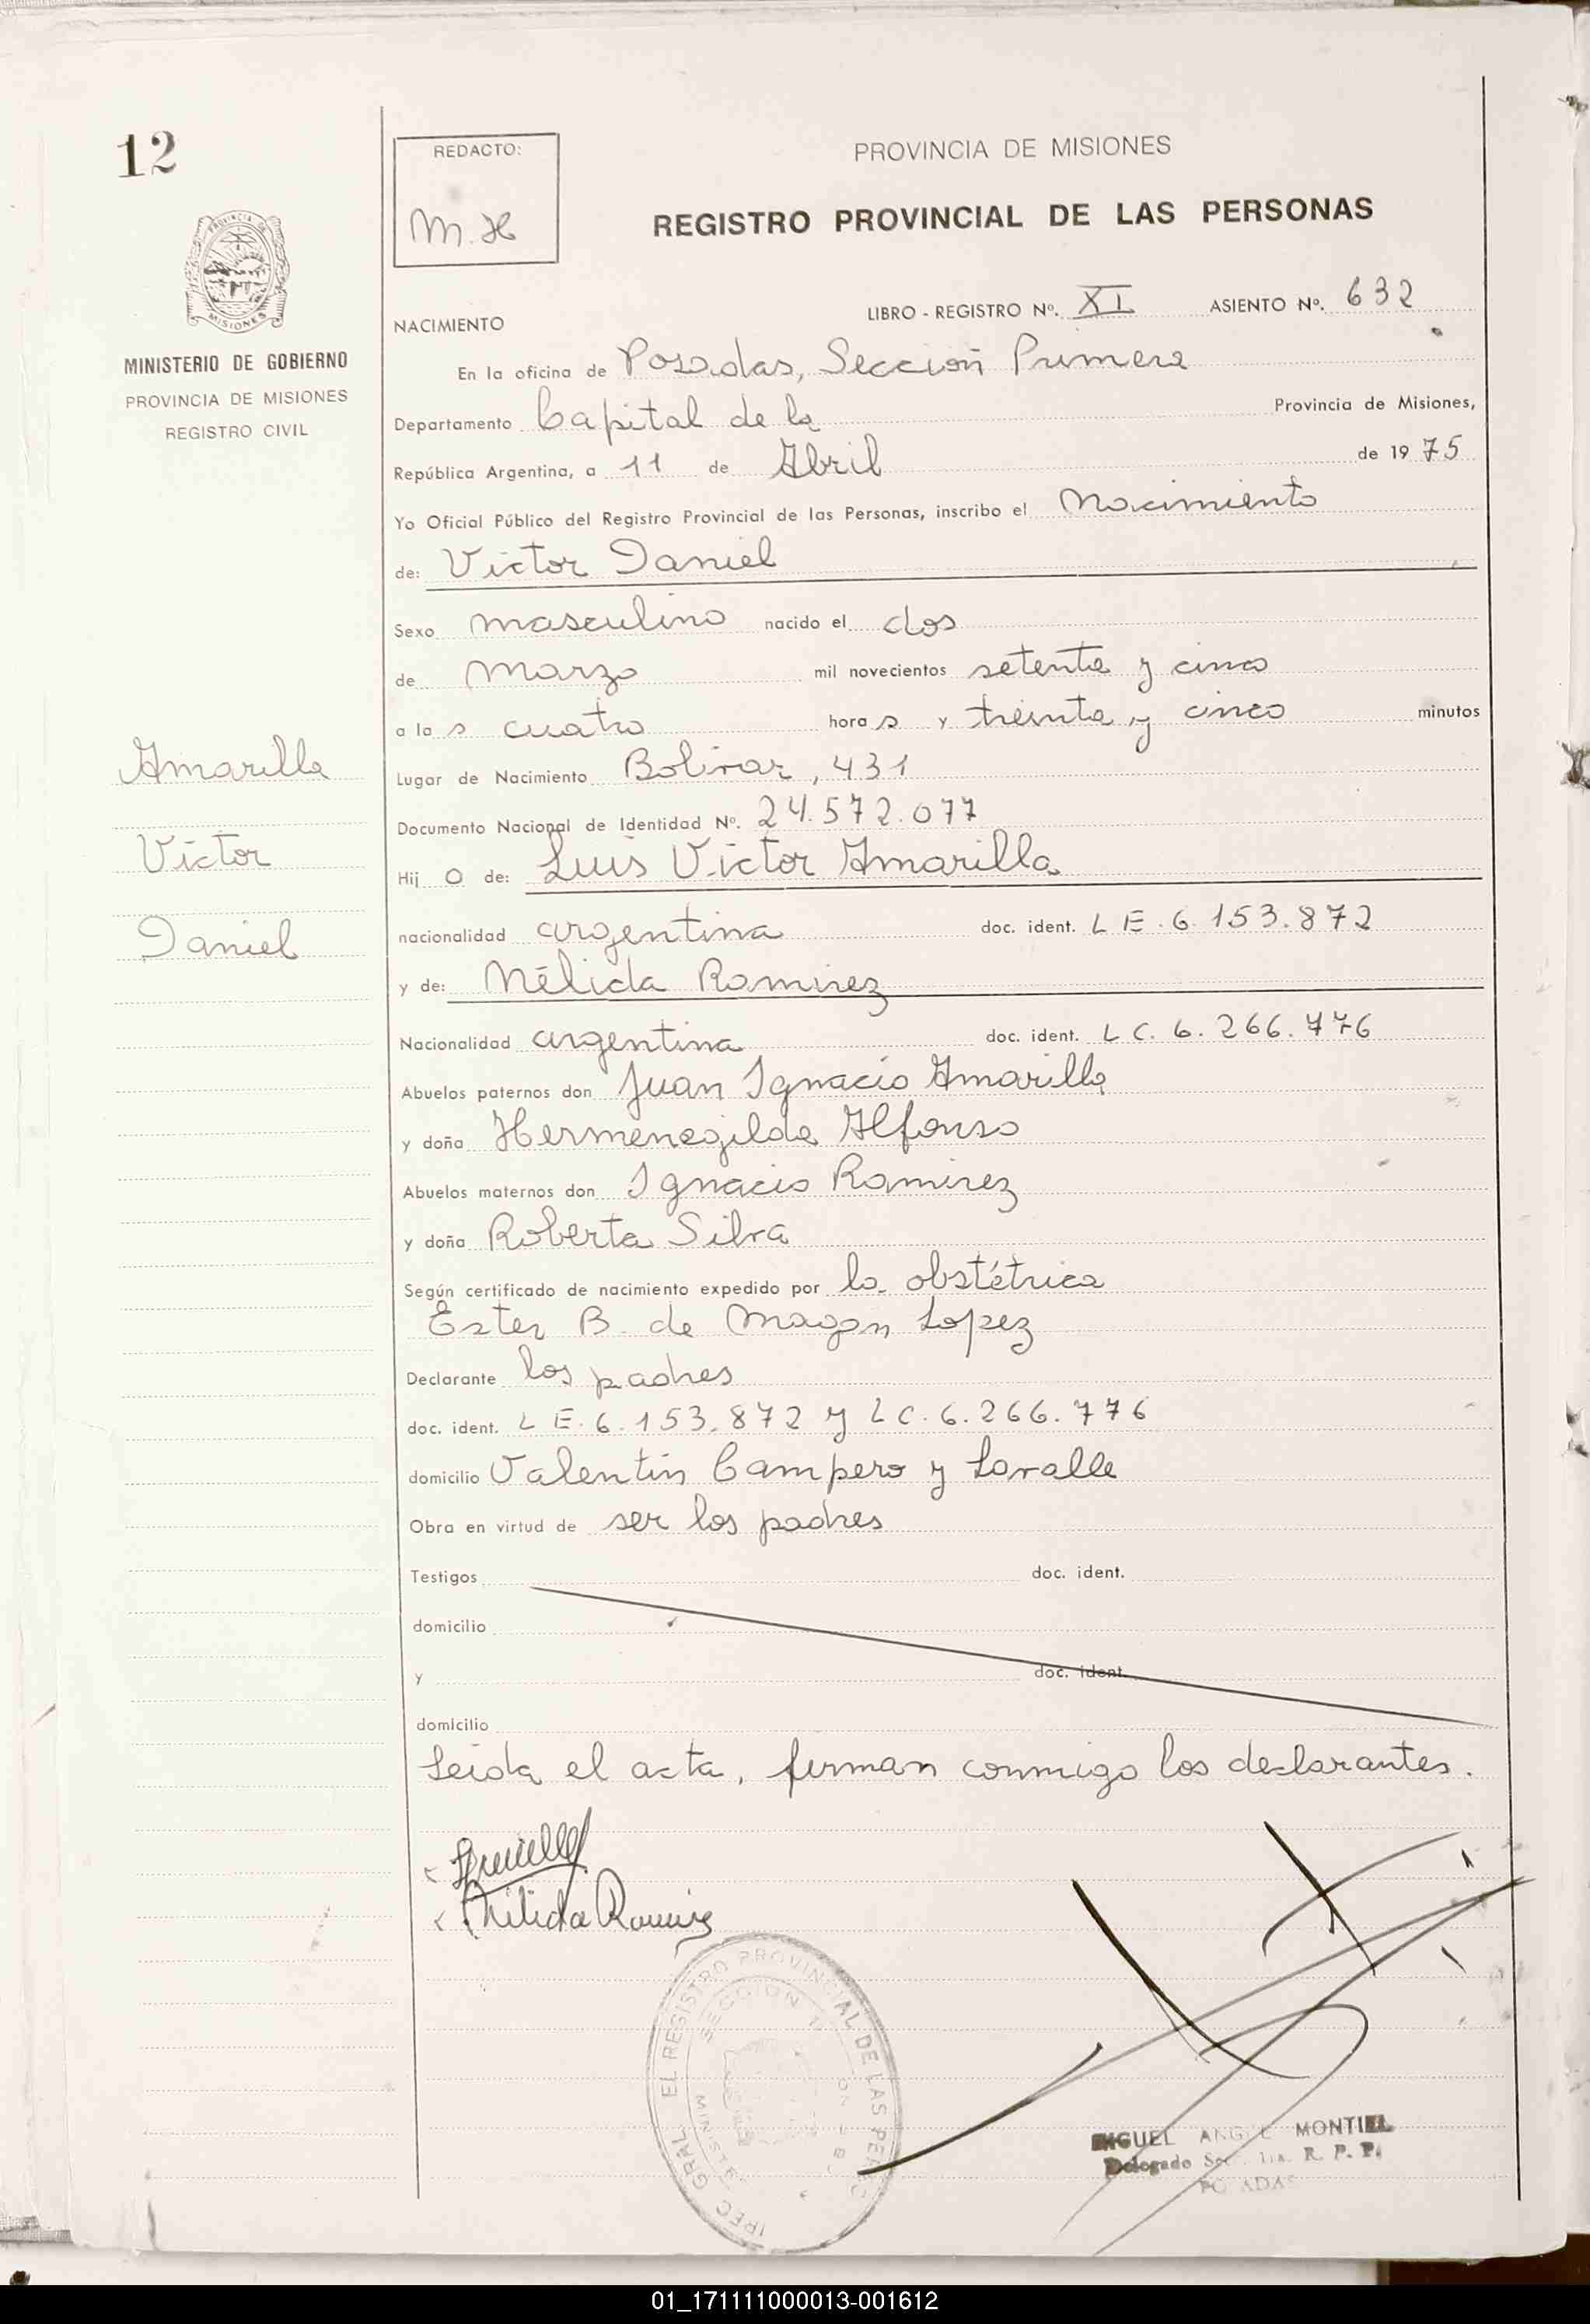 12
REDACTO:
M. H
PROVINCIA DE MISIONES
REGISTRO PROVINCIAL DE LAS PERSONAS
MISIONES
MINISTERIO DE GOBIERNO
PROVINCIA DE MISIONES
REGISTRO CIVIL
NACIMIENTO LIBRO - REGISTRO Nº. XI ASIENTO Nº. 632
En la oficina de Posadas, Sección Primera
Departamento Capital de la Provincia de Misiones,
República Argentina, a 11 de Abril de 1975
Yo Oficial Público del Registro Provincial de las Personas, inscribo el Nacimiento
de: Victor Daniel
Sexo masculino nacido el dos
de marzo mil novecientos setenta y cinco
a las cuatro horas y treinta y cinco minutos
Lugar de Nacimiento Bolivar, 431
Documento Nacional de Identidad Nº. 24.572.077
Hijo de: Luis Victor Amarilla
nacionalidad argentina doc. ident. L E. 6.153.872
y de: Nélida Ramirez
Nacionalidad argentina doc. ident. L C. 6.266.776
Abuelos paternos don Juan Ignacio Amarilla
y doña Hermenegilda Alfonso
Abuelos maternos don Ignacio Ramirez
y doña Roberta Silva
Según certificado de nacimiento expedido por la obstétrica
Ester B. de Magan Lopez
Declarante los padres
doc. ident. L E. 6.153.872 y L C. 6.266.776
domicilio Valentin Campero y Lavalle
Obra en virtud de ser los padres
Testigos doc. ident.
domicilio
y doc. ident.
domicilio
Leida el acta, firman conmigo los declarantes.
Amarilla
Victor
Daniel
Nilida Ramirez
GRAL EL REGISTRO PROVINCIAL DE LAS PERS
SECCION 1
MIGUEL ANGEL MONTIEL
Delegado R. P. P.
POSADAS
01_171111000013-001612